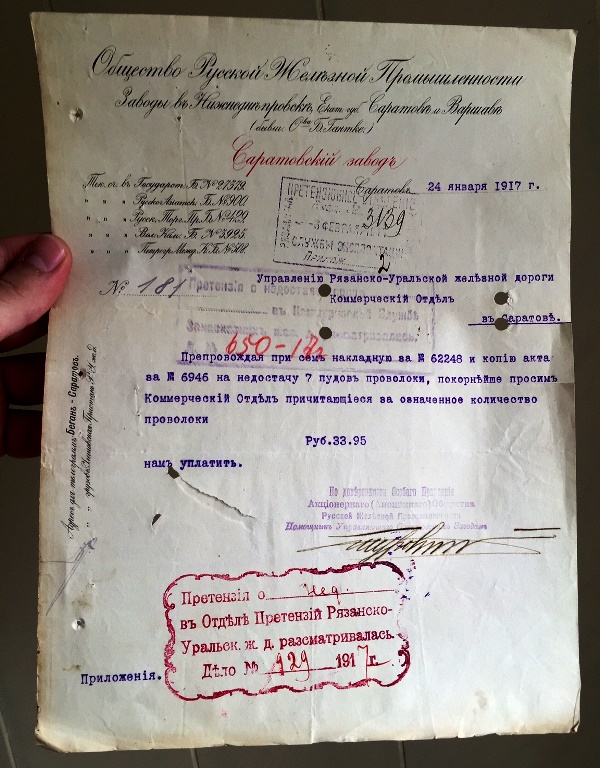 Общество Русской Желѣзной Промышленности
Заводы въ Нижнеднѣпровскѣ, Екат. губ. Саратовѣ и Варшавѣ
(бывш. О-ва Б. Гантке.)
Саратовскій заводъ
Тек. сч. въ Государст. Б. № 21579.
" " " Русско Азіатск. Б. № 3900.
" " " Русск. Торг. Пр. Б. № 4429
" " " Вол. Кам. Б. № 3995.
" " " Петрогр. Межд. К. Б. № 308.
Саратовъ 24 января 1917 г.
ПРЕТЕНЗІОННЫЙ
3139
ФЕВРАЛ
СЛУЖБЫ
Прилож. 2
№ 181
Управленію Рязанско-Уральской желѣзной дороги
Коммерческій Отдѣлъ
въ Саратовѣ.
Претензія о недостач
въ Коммерческой Службѣ
650-17г
Препровождая при семъ накладную за № 62248 и копію акта
за № 6946 на недостачу 7 пудовъ проволоки, покорнѣйше просимъ
Коммерческій Отдѣлъ причитающіеся за означенное количество
проволоки
Руб.33.95
намъ уплатить.
Адресъ для телеграммъ Бегонъ - Саратовъ.
По довѣренности Особаго Правленія
Акціонернаго (Анонимнаго) Общества
Русской Желѣзной Промышленности
Помощникъ Управляющаго Саратовскимъ Заводомъ
Претензія о Нед.
въ Отдѣлѣ Претензій Рязанско-
Уральск. ж. д. разсматривалась.
Дѣло № 929 1917 г.
Приложенія.